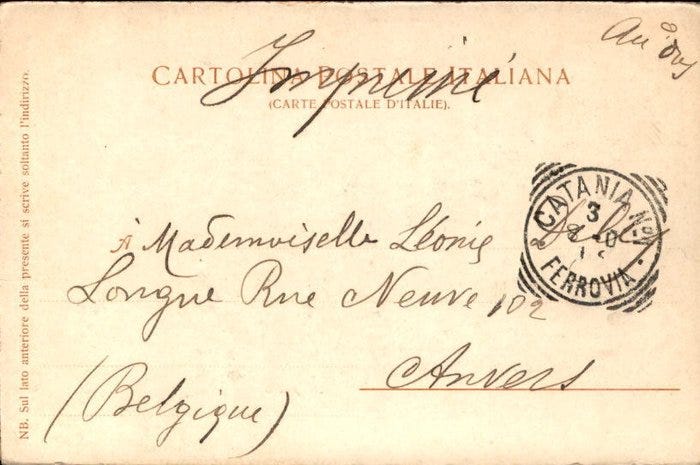 CARTOLINA POSTALE ITALIANA
(CARTE POSTALE D'ITALIE).
Imprimé
NB. Sul lato anteriore della presente si scrive soltanto l'indirizzo.
CATANIA
3
FERROVIA
À Mademoiselle Léonie
Longue Rue Neuve 102
Anvers
(Belgique)